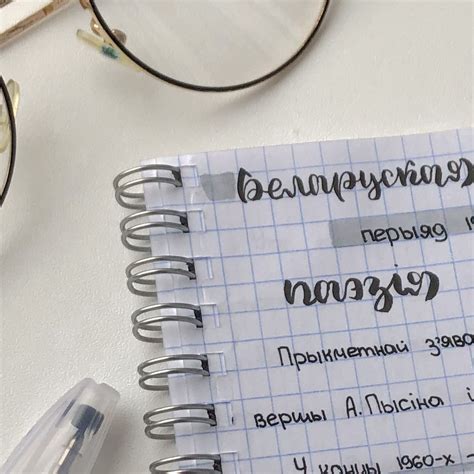 Беларуская
перыяд
паэзія
Прыкметнай з'ява
вершы А.Пысіна і
У канцы 1960-х